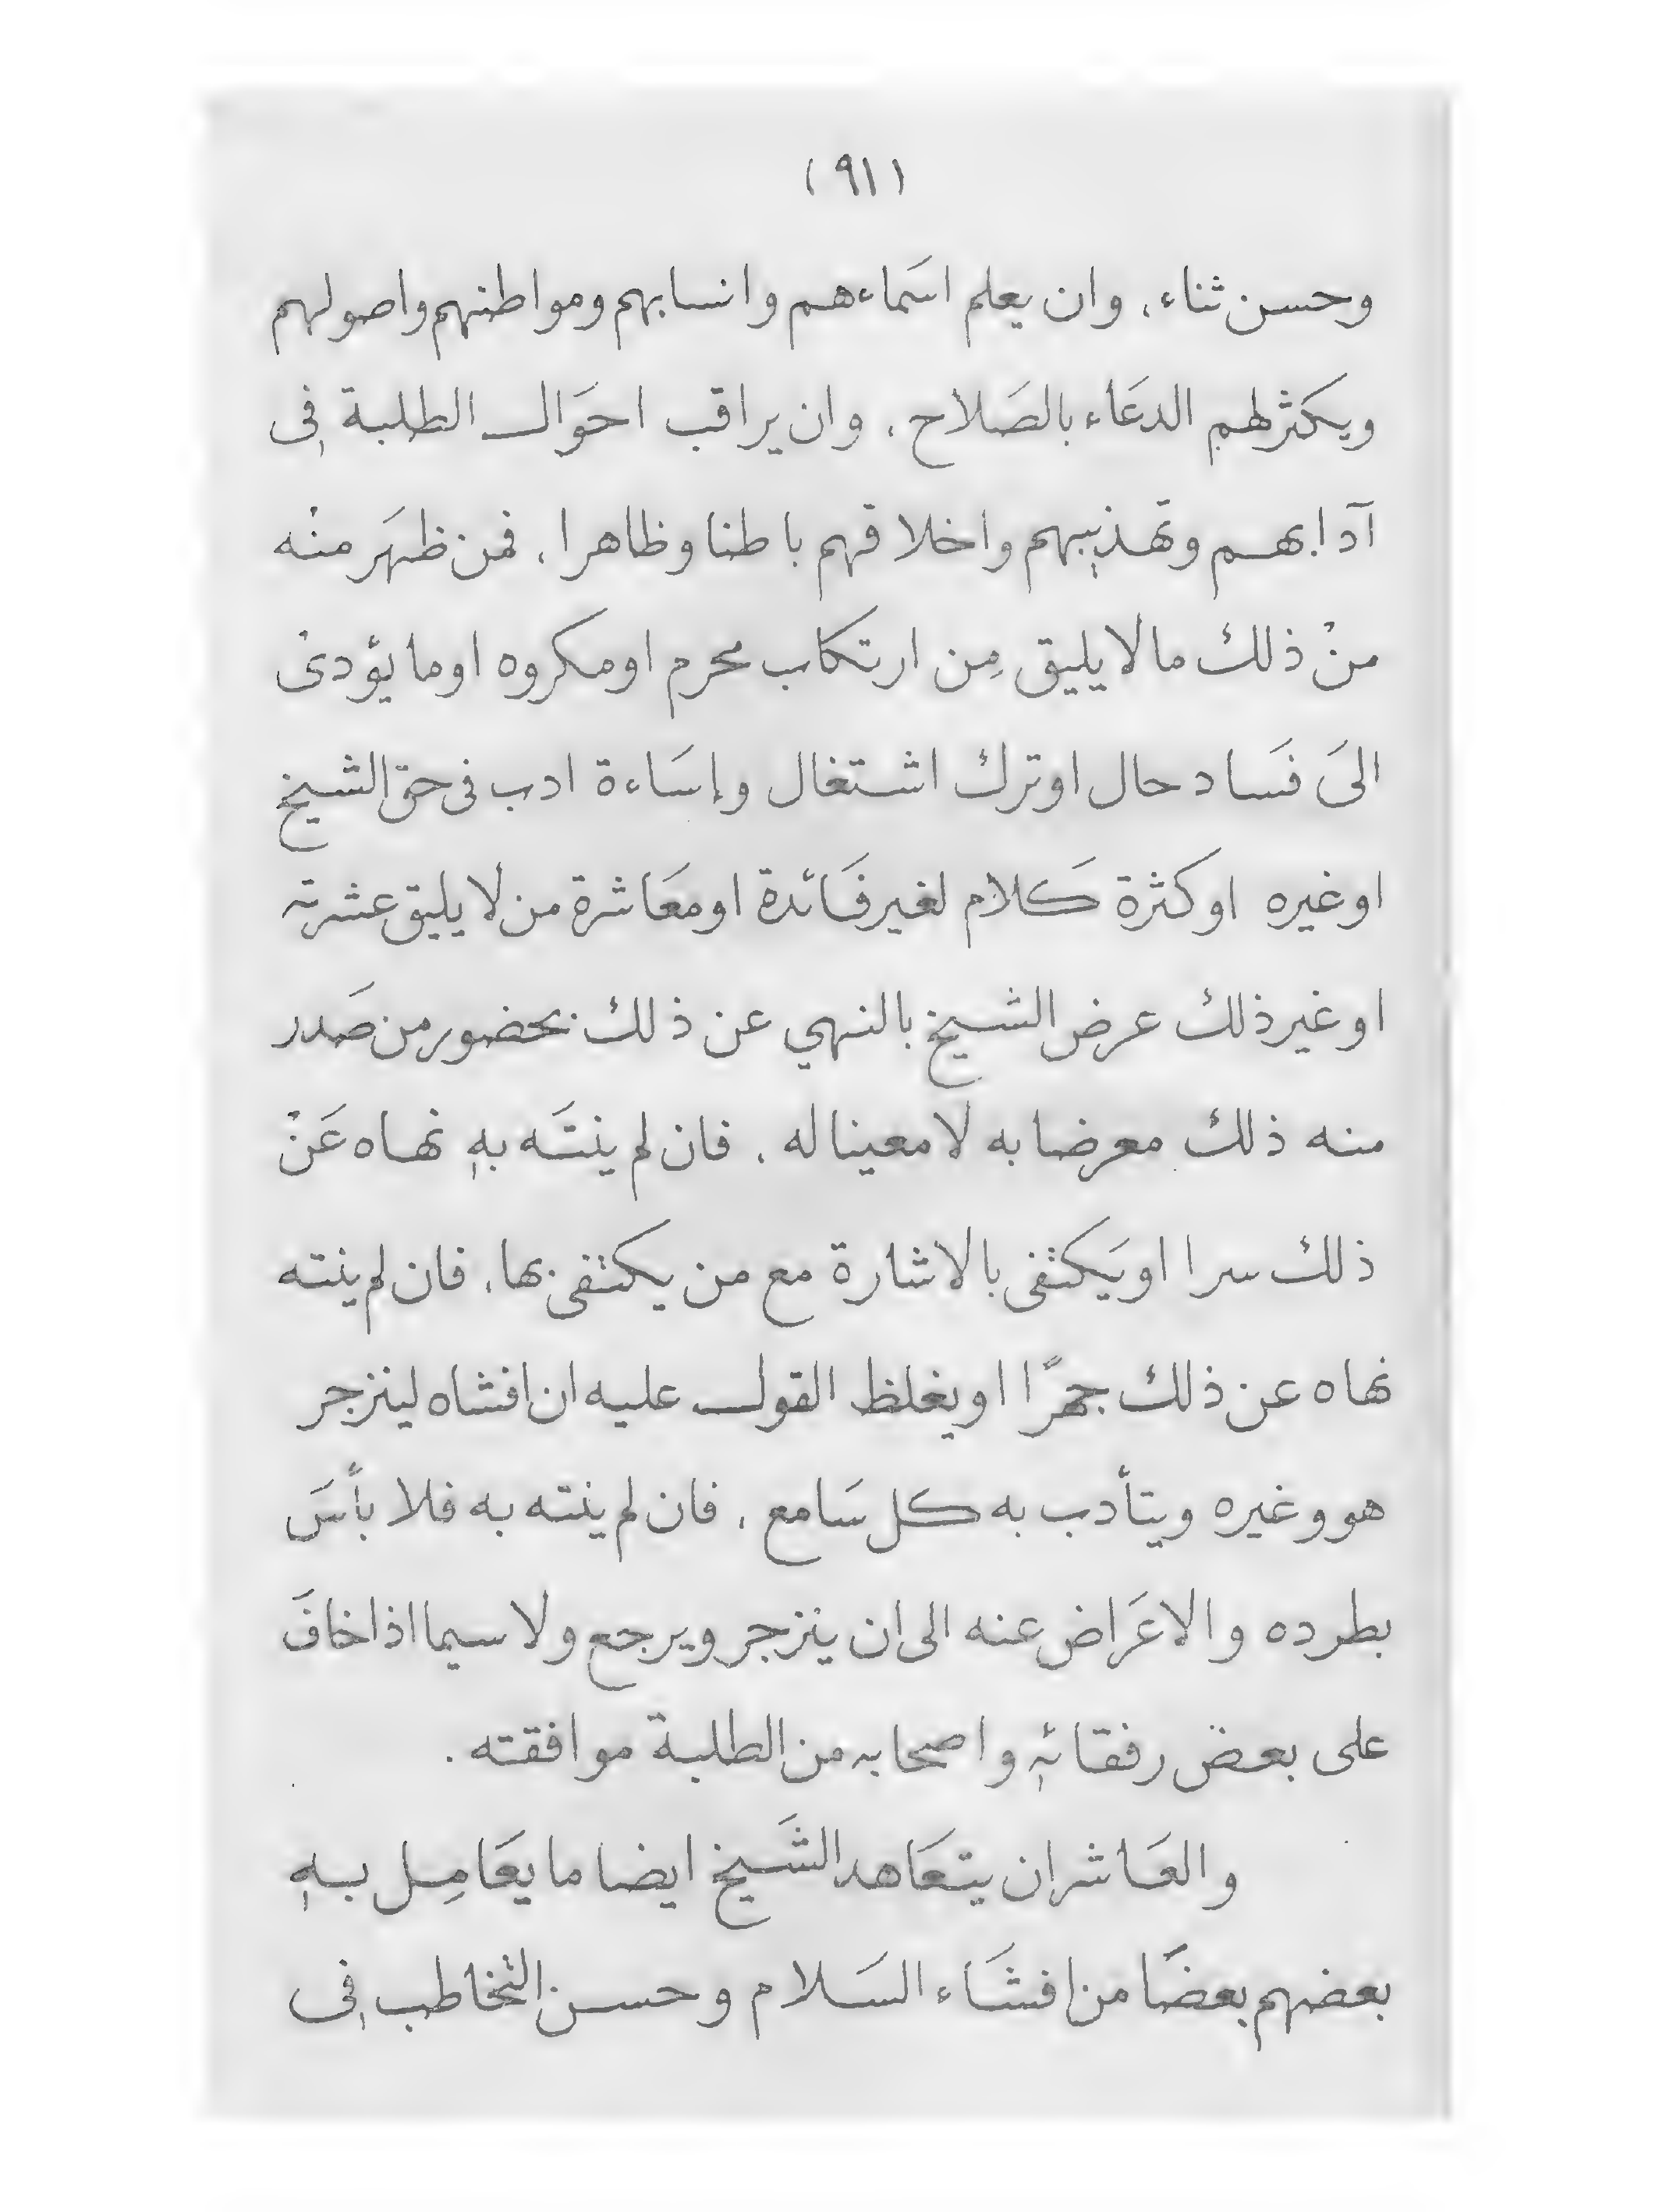 (٩١)
وحسن ثناء، وان يعلم اسَماءهم وانسابهم ومواطنهم واصولهم
ويكثرلهم الدعَاء بالصَلاح، وان يراقب احوَال الطلبة فِى
آدابهم وتهذيبهم واخلاقهم باطنا وظاهرا، فمن ظهَر منْه
منْ ذلك مالايليق مِن ارتكاب محرم اومكروه اومايؤدىْ
الىَ فسَاد حال اوترك اشتغال وإسَاءة ادب فى حق الشيخ
اوغيره اوكثرة كَلام لغيرفَائدة اومعَاشرة من لايليق عشرته
اوغيرذلك عرض الشيخ بالنهي عن ذلك بحضورمن صَدر
منه ذلك معرضا به لامعيناله، فان لم ينتَه بهِ نهاه عَنْ
ذلك سرا اويَكتفى بالاشارة مع من يكتفى بها، فان لم ينته
نهاه عن ذلك جهرًا اويغلظ القول عليه ان افشاه لينزجر
هووغيره ويتأدب به كل سَامع، فان لم ينته به فلا بأسَ
بطرده والاعَراض عنه الى ان ينزجر ويرجع ولاسيما اذاخافَ
على بعض رفقائهِ واصحابه من الطلبة موافقته.
والعَاشران يتعَاهد الشَيخ ايضا مايعَامِل بهِ
بعضهم بعضًا من افشَاء السَلام وحسن التخاطب فِى